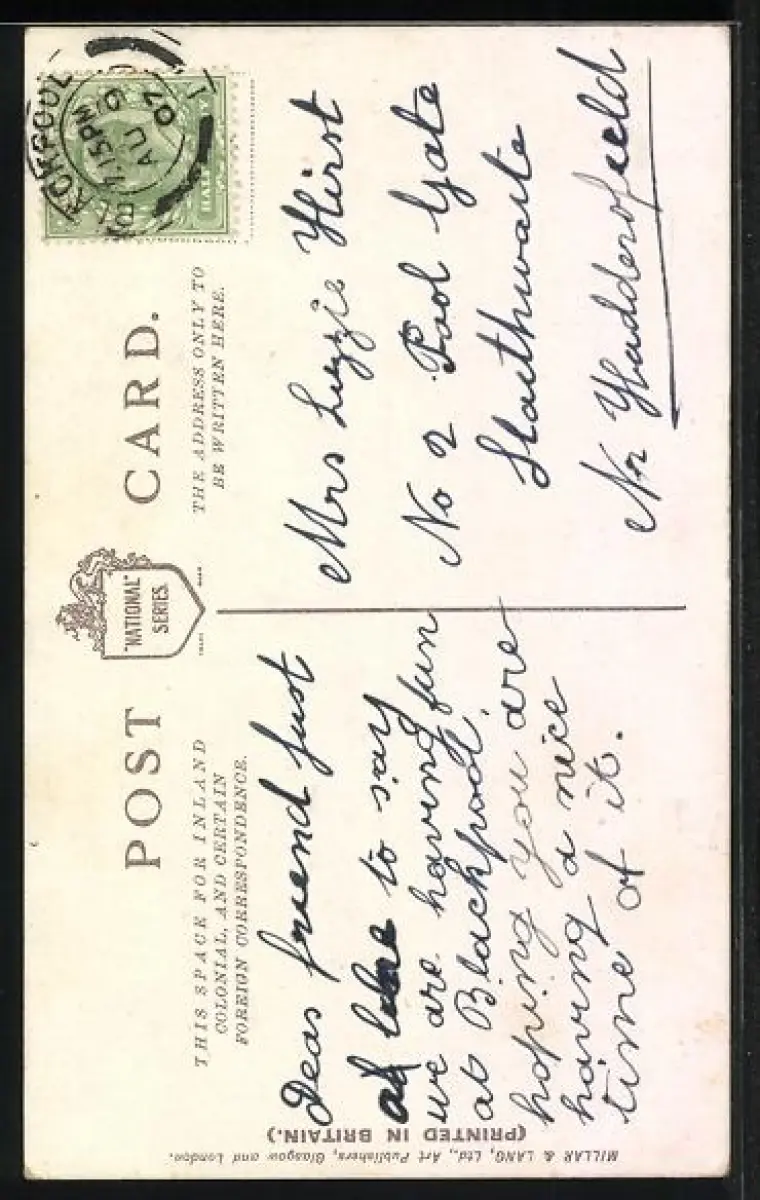 POST CARD.
"NATIONAL"
SERIES.
THIS SPACE FOR INLAND
COLONIAL, AND CERTAIN
FOREIGN CORRESPONDENCE.
THE ADDRESS ONLY TO
BE WRITTEN HERE.
BLACKPOOL
7.15PM
AU 9
07
1
HALF
Dear friend just
a line to say
we are having fun
at Blackpool,
hoping you are
having a nice
time of it.
Mrs Lizzie Hirst
No 2 Pool Gate
Slaithwaite
Nr Huddersfield
(PRINTED IN BRITAIN.)
MILLAR & LANG, Ltd., Art Publishers, Glasgow and London.